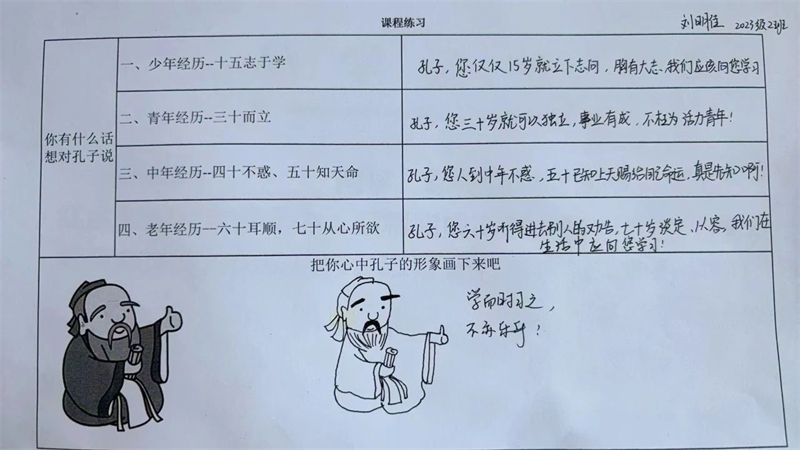 课程练习
刘明佳 2023级2班
你有什么话
想对孔子说
一、少年经历--十五志于学
孔子,您仅仅15岁就立下志向,胸有大志,我们应该向您学习
二、青年经历--三十而立
孔子,您三十岁就可以独立,事业有成,不枉为活力青年!
三、中年经历--四十不惑、五十知天命
孔子,您人到中年不惑,五十已知上天赐给的命运,真是先知啊!
四、老年经历--六十耳顺,七十从心所欲
孔子,您六十岁听得进去别人的劝告,七十岁淡定、从容,我们在
生活中应向您学习!
把你心中孔子的形象画下来吧
学而时习之,
不亦乐乎?